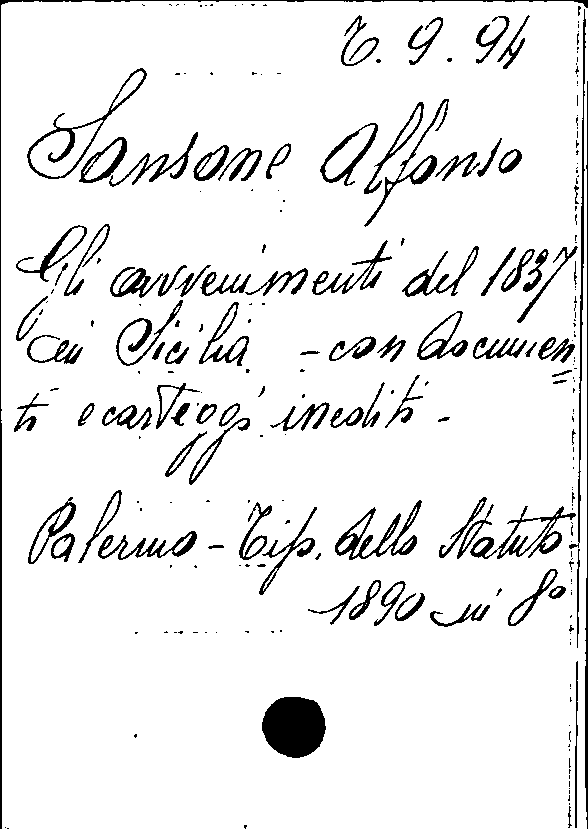 6. 9. 94
Sansone Alfonso
Gli avvenimenti del 1837
in Sicilia - con documen
ti e carteggi inediti -
Palermo - Tip. dello Statuto
1890 in 8º